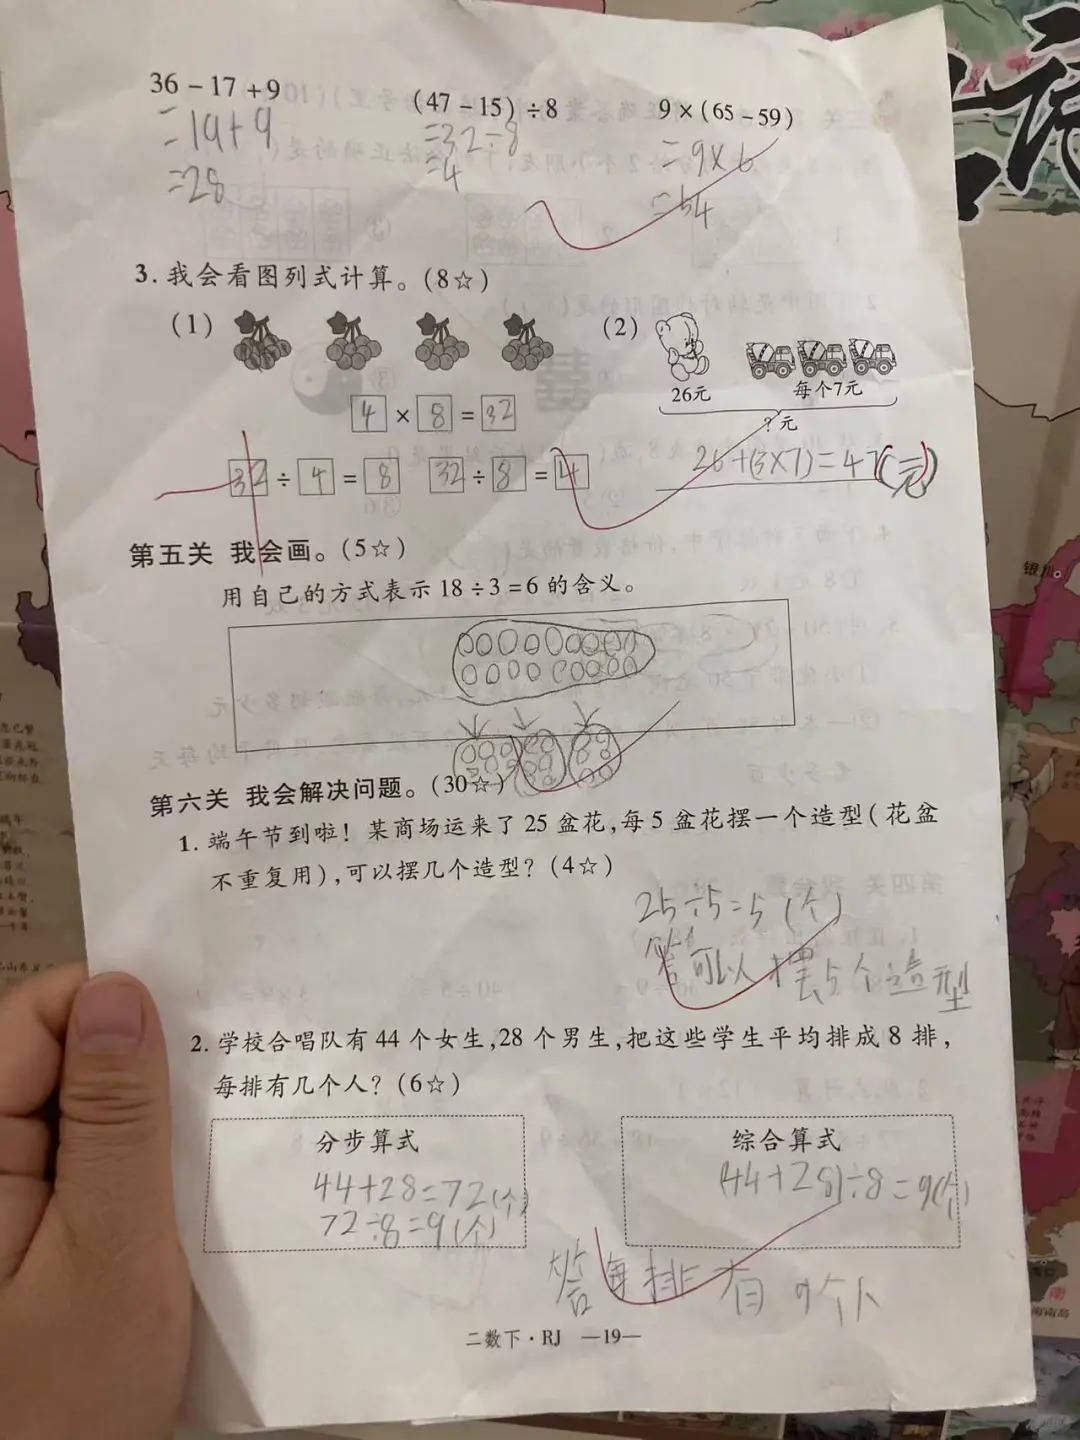 36-17+9 (47-15)÷8 9×(65-59)
=19+9 =32÷8 =9×6
=28 =4 =54
3. 我会看图列式计算。(8☆)
(1) (2)
26元 每个7元
4×8=32
?元
32÷4=8 32÷8=4 26+(3×7)=47(元)
第五关 我会画。(5☆)
用自己的方式表示18÷3=6的含义。
第六关 我会解决问题。(30☆)
1. 端午节到啦！某商场运来了25盆花,每5盆花摆一个造型(花盆
不重复用),可以摆几个造型？(4☆)
25÷5=5(个)
答可以摆5个造型
2. 学校合唱队有44个女生,28个男生,把这些学生平均排成8排,
每排有几个人？(6☆)
分步算式 综合算式
44+28=72(个) (44+28)÷8=9(个)
72÷8=9(个)
答每排有9个人
二数下·RJ —19—